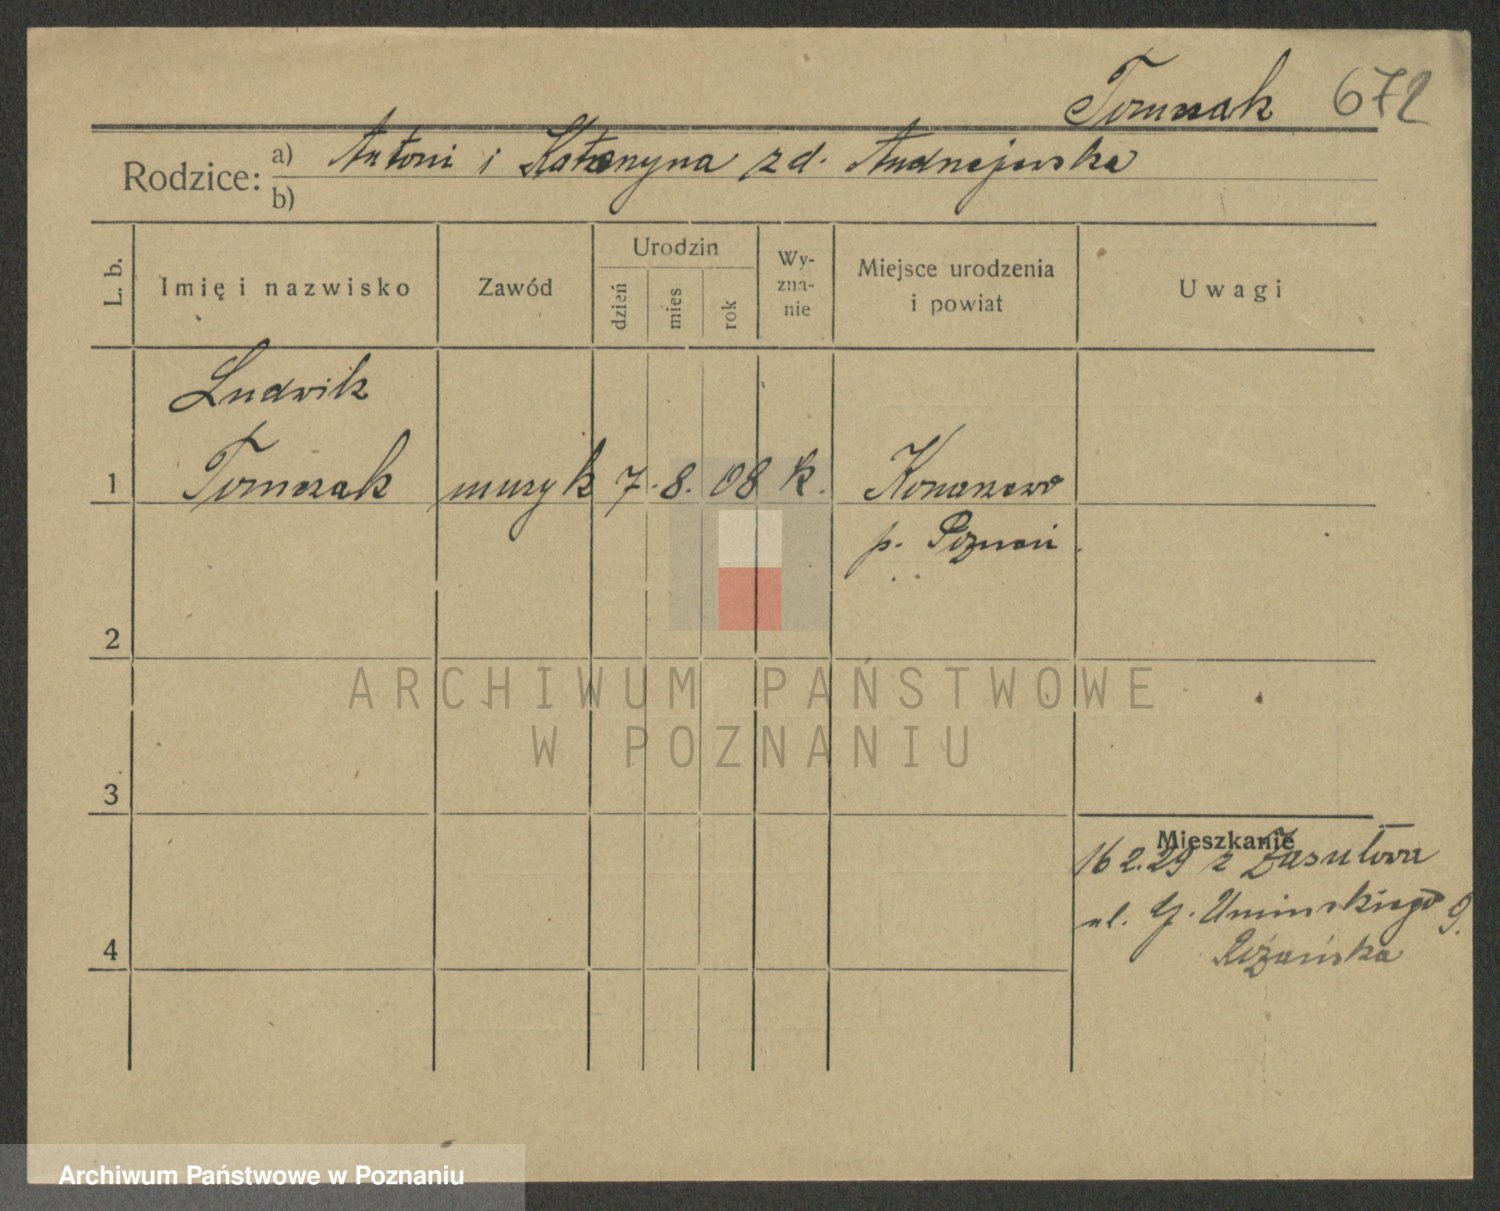 Tomczak 672
Rodzice: a) Antoni i Katarzyna z d. Andrzejewska
b)
L. b. Imię i nazwisko Zawód Urodzin dzień mies rok Wy-zna-nie Miejsce urodzenia i powiat Uwagi
Ludwik
1 Tomczak muzyk 7. 8. 08 k. Konarzewo
p. Poznań
2
ARCHIWUM PAŃSTWOWE
W POZNANIU
3
Mieszkanie
16 2.29 z Zasutowa
ul. G. Umińskiego 9.
4 Różańska
Archiwum Państwowe w Poznaniu